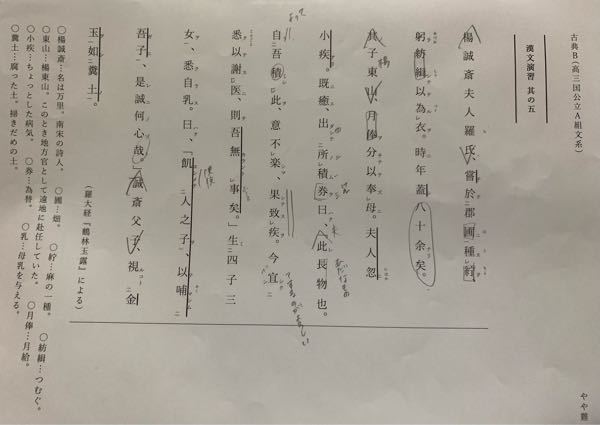 古典B(高三国公立A組文系)
漢文演習 其の五
やや難
楊誠斎夫人羅氏、嘗於郡圃種紵、
躬紡緝以為衣。時年蓋八十余矣。
其子東山、月俸分以奉母。夫人忽
小疾。既癒、出所積券曰、「此長物也。
自吾積此、意不楽、果致疾。今宜
悉以謝医、則吾無事矣。」生四子三
女、悉自乳。曰、「飢人之子、以哺
吾子、是誠何心哉。」誠斎父子、視金
玉如糞土。
(羅大経『鶴林玉露』による)
○楊誠斎…名は万里。南宋の詩人。 ○圃…畑。 ○紵…麻の一種。 ○紡緝…つむぐ。
○東山…楊東山。このとき地方官として遠地に赴任していた。 ○月俸…月給。
○小疾…ちょっとした病気。 ○券…為替。 ○乳…母乳を与える。
○糞土…腐った土。掃きだめの土。